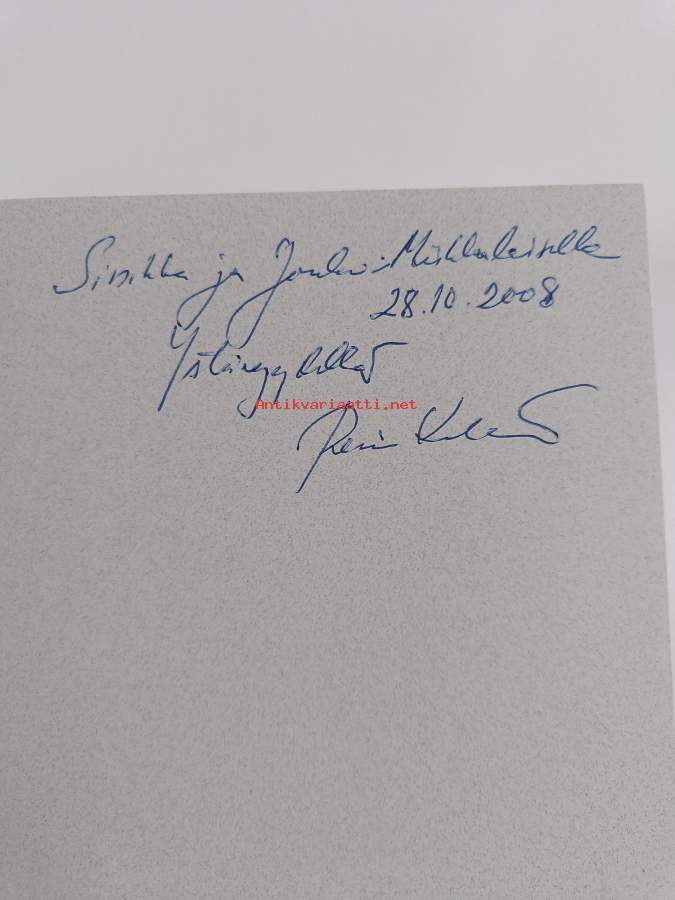 Sirkka ja Jouko Mikkolaiselle
28.10.2008
Ystävyydellä
Antikvariaatti.net